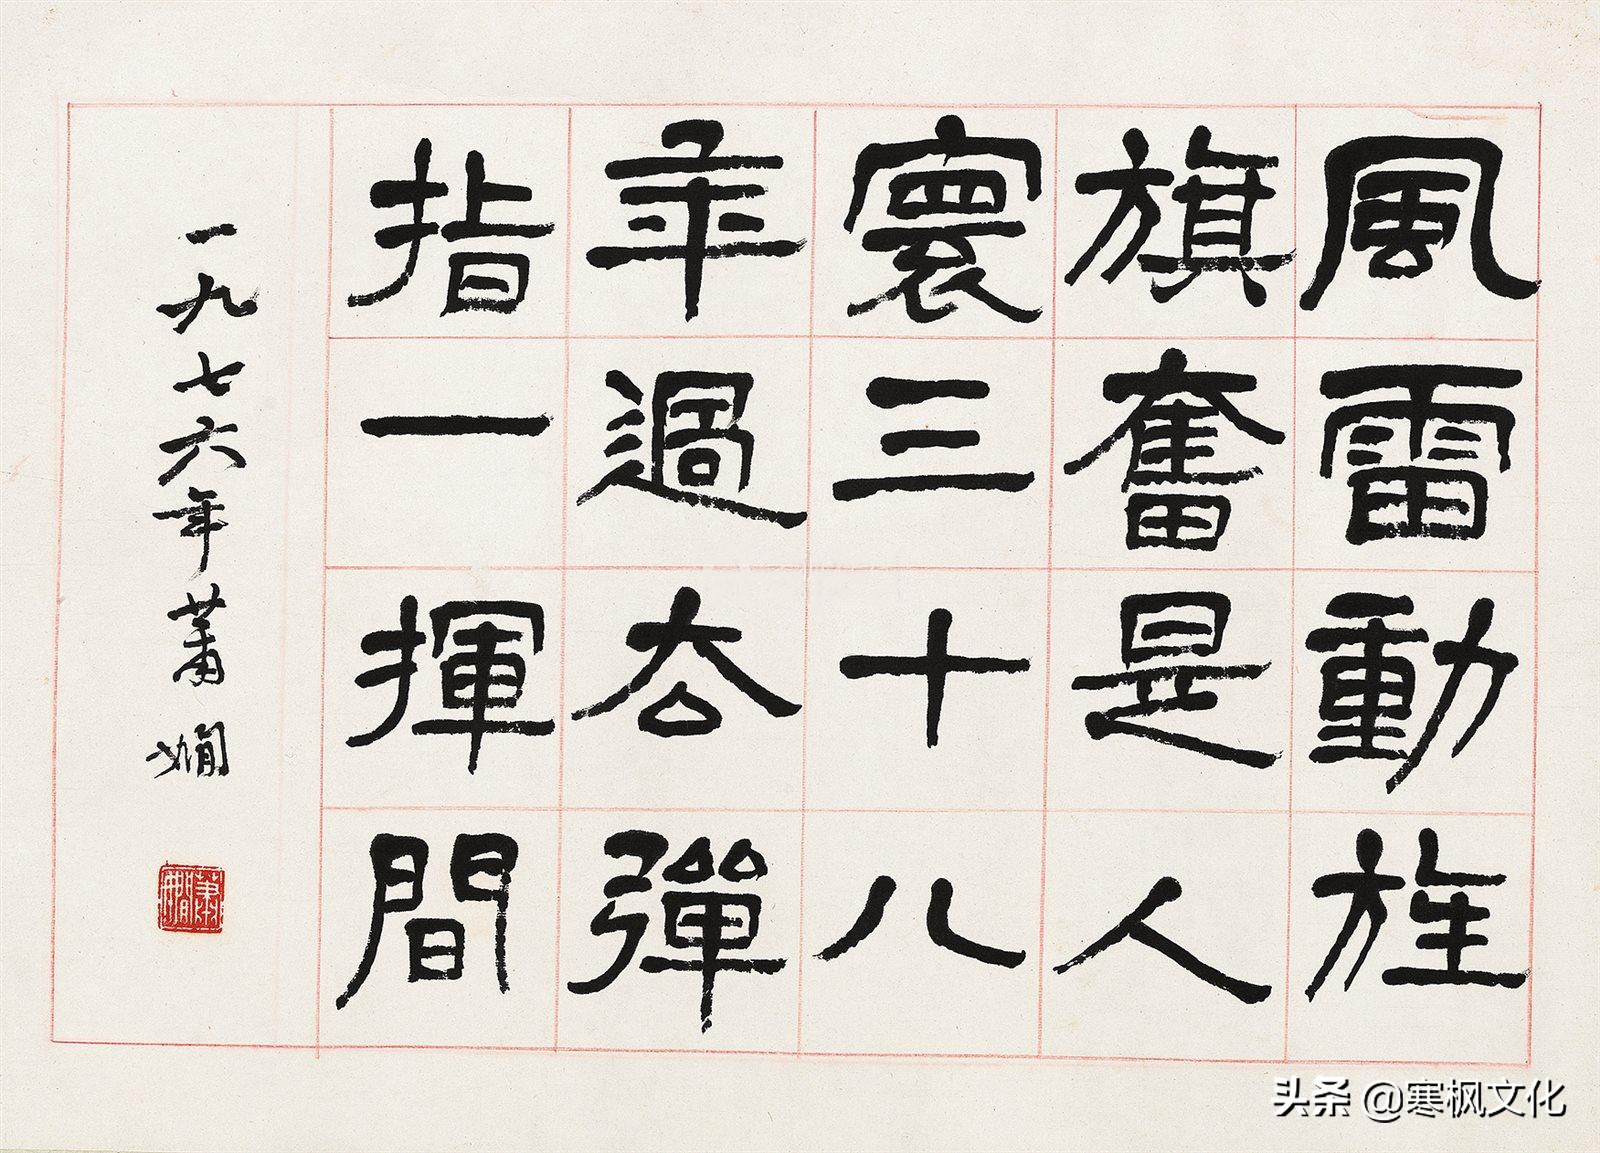 風雷動旌
旗奮是人
寰三十八
年過去彈
指一揮間
一九七六年蕭嫻
蕭嫻
头条 @寒枫文化